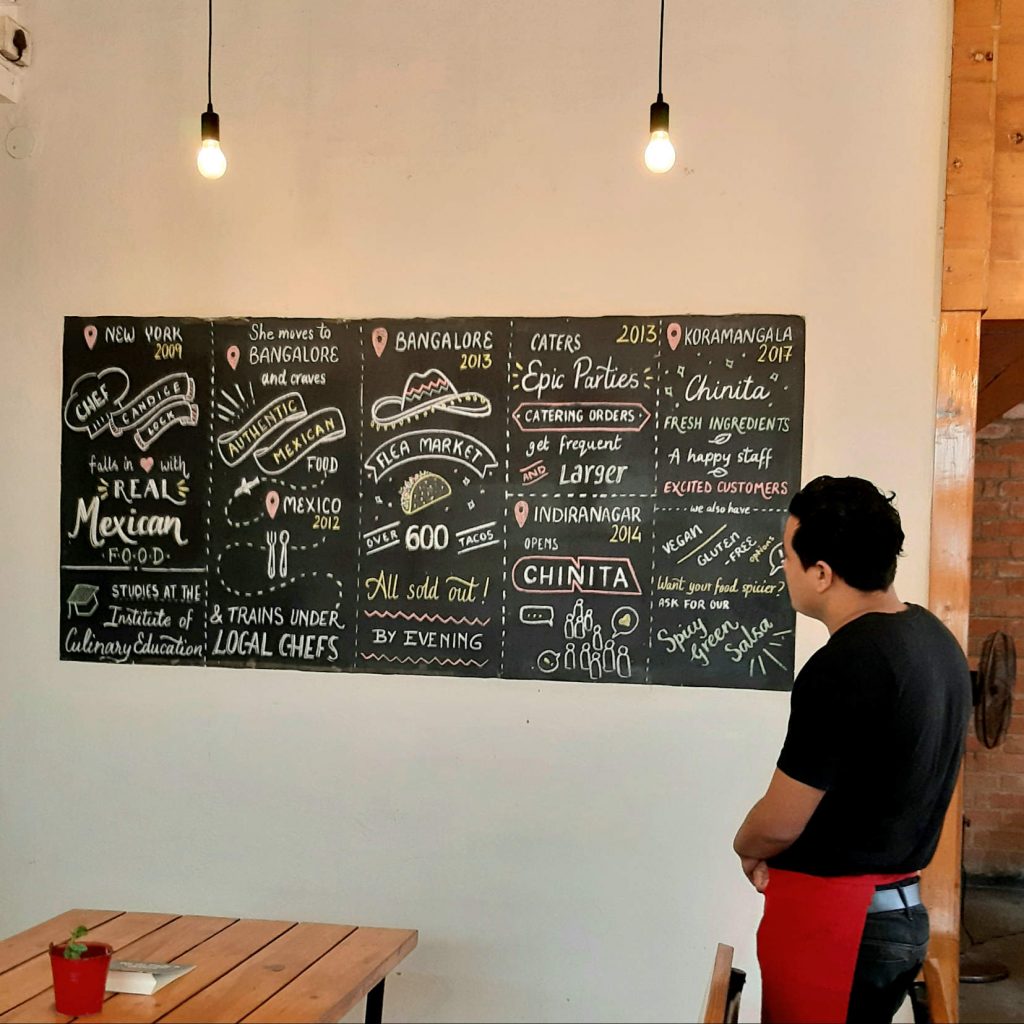 NEW YORK
2009
CHEF
CANDICE
LOCK
falls in with
REAL
Mexican
FOOD
STUDIES AT THE
Institute of
Culinary Education
She moves to
BANGALORE
and craves
AUTHENTIC
MEXICAN
FOOD
MEXICO
2012
& TRAINS UNDER
LOCAL CHEFS
BANGALORE
2013
FLEA MARKET
OVER 600 TACOS
All sold out!
BY EVENING
CATERS 2013
Epic Parties
CATERING ORDERS
get frequent
AND Larger
INDIRANAGAR
2014
OPENS
CHINITA
KORAMANGALA
2017
Chinita
FRESH INGREDIENTS
A happy staff
EXCITED CUSTOMERS
we also have
VEGAN
GLUTEN
-FREE
options
Want your food spicier?
ASK FOR OUR
Spicy
Green
Salsa